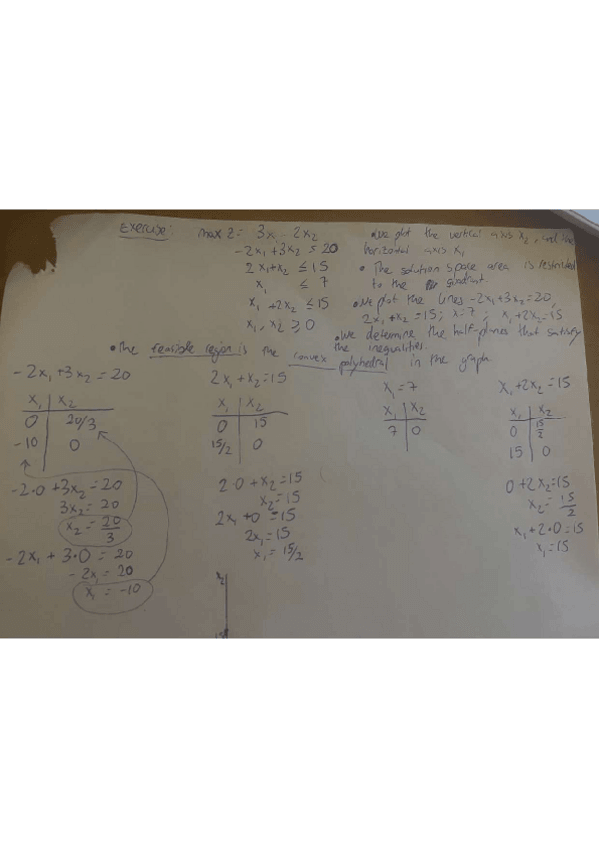 Exercise: max z = 3x₁ - 2x₂
-2x₁ + 3x₂ ≤ 20
2x₁ + x₂ ≤ 15
x₁ ≤ 7
x₁ + 2x₂ ≤ 15
x₁, x₂ ≥ 0
• We plot the vertical axis x₂, and the
horizontal axis x₁
• The solution space area is restricted
to the quadrant.
• We plot the lines -2x₁+3x₂=20,
2x₁+x₂=15; x=7; x₁+2x₂=15
• We determine the half-planes that satisfy
the inequalities.
• The feasible region is the convex polyhedral in the graph
-2x₁ + 3x₂ = 20
x₁ | x₂
0 | 20/3
-10 | 0
-2·0 + 3x₂ = 20
3x₂ = 20
x₂ = 20/3
-2x₁ + 3·0 = 20
-2x₁ = 20
x₁ = -10
2x₁ + x₂ = 15
x₁ | x₂
0 | 15
15/2 | 0
2·0 + x₂ = 15
x₂ = 15
2x₁ + 0 = 15
2x₁ = 15
x₁ = 15/2
x₂
x₁ = 7
x₁ | x₂
7 | 0
x₁ + 2x₂ = 15
x₁ | x₂
0 | 15/2
15 | 0
0 + 2x₂ = 15
x₂ = 15/2
x₁ + 2·0 = 15
x₁ = 15